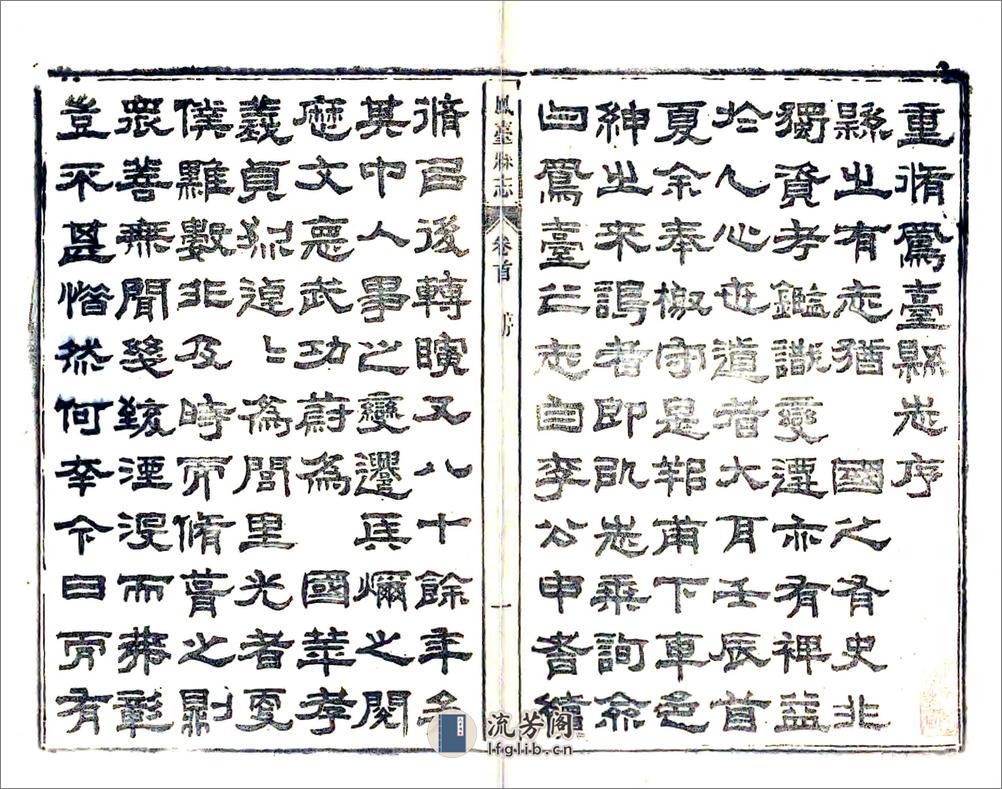 重脩鳳臺縣志序
縣之有志猶國之有史非
獨資考鑑識變遷亦有裨益
於人心世道者大耳壬辰首
夏余奉檄守是邦甫下車邑
紳之來謁者即以志乘詢僉
曰鳳臺之志自李公申耆續
鳳臺縣志 卷首 序 一
脩已後轉瞬又八十餘年矣
其中人事之變遷兵燹之閱
歷文悳武功蔚為國華孝
義貞烈焯〻為閭里光者更
僕難數非及時而脩之則
衆善無聞幾致湮沒而弗彰
豈不甚惜然何幸今日而有
流芳阁
lfglib.cn